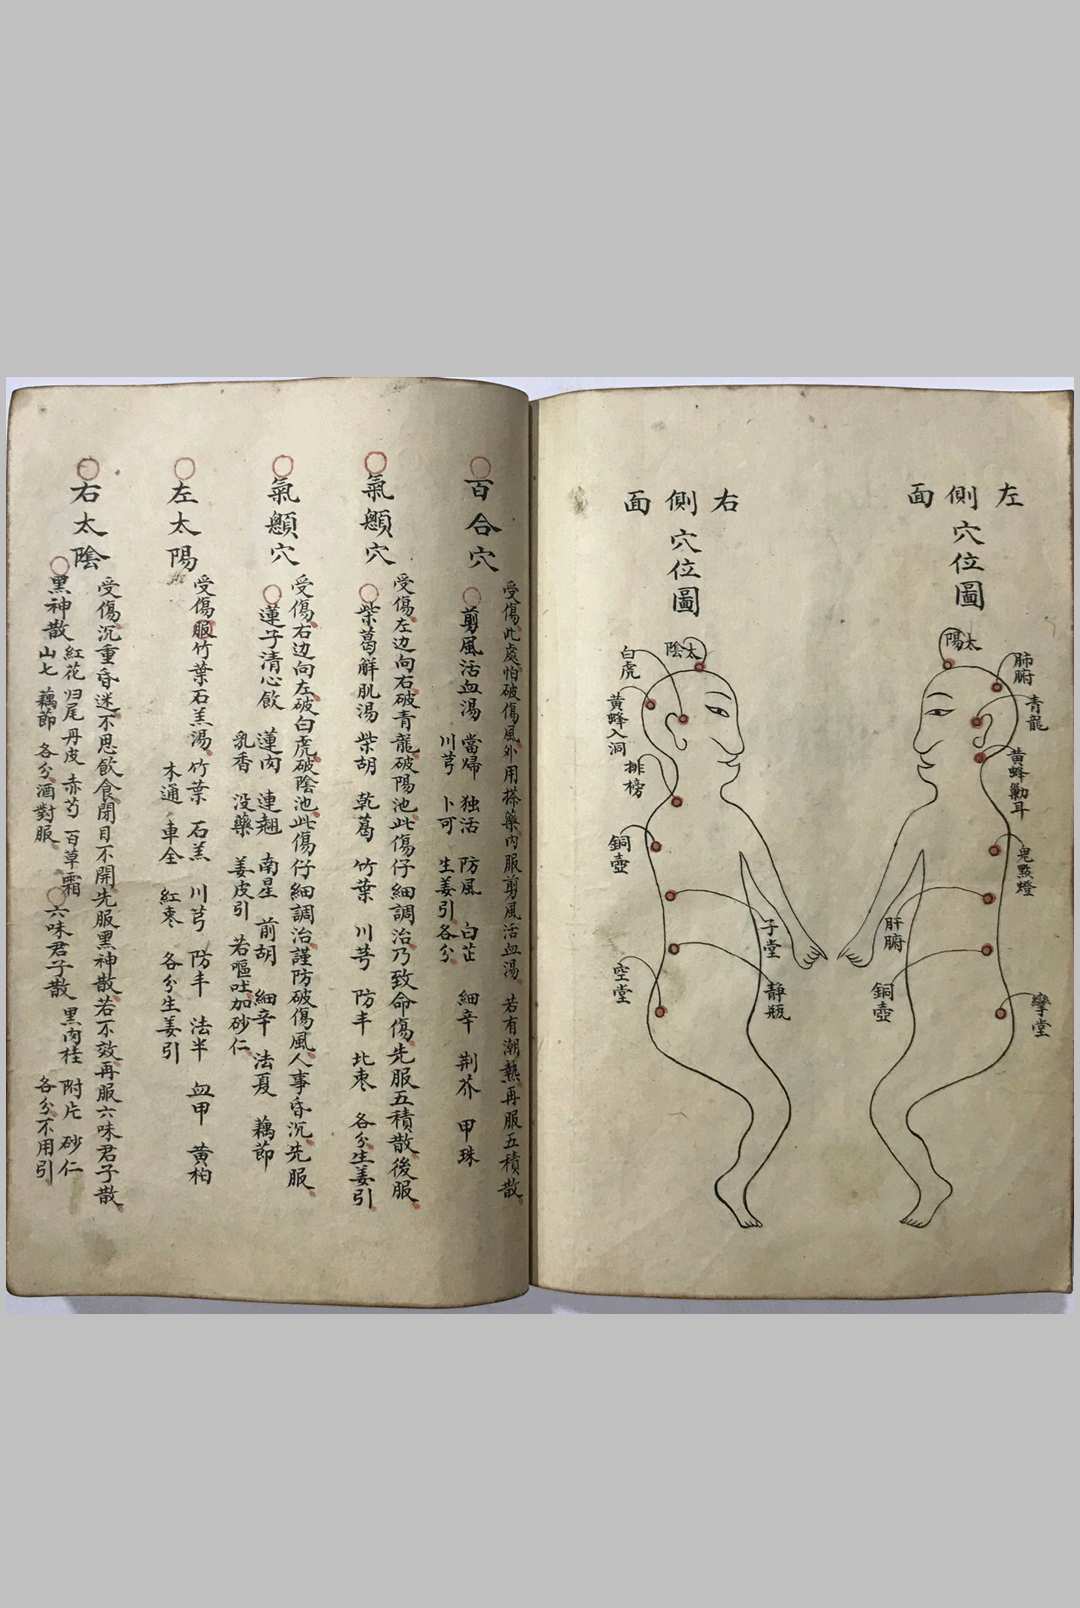 左側面
穴位圖
太陽
肺腑
青龍
黃蜂勤耳
鬼點燈
肝腑
銅壺
孿堂
右側面
穴位圖
太陰
白虎
黃蜂入洞
排榜
銅壺
子堂
静瓶
空堂
百合穴
受傷此處怕破傷風外用搽藥内服剪風活血湯 若有潮熱再服五積散
剪風活血湯 當歸 独活 防風 白芷 細辛 荆芥 甲珠
川芎 卜可 生姜引各分
氣顙穴
受傷左边向右破青龍破陽池此傷仔細調治乃致命傷先服五積散後服
柴葛解肌湯 柴胡 乾葛 竹葉 川芎 防丰 北枣 各分生姜引
氣顙穴
受傷右边向左破白虎破陰池此傷仔細調治謹防破傷風人事昏沉先服
蓮子清心飲 蓮肉 連翹 南星 前胡 細辛 法夏 藕節
乳香 没藥 姜皮引 若嘔吐加砂仁
左太陽
受傷服竹葉石羔湯 竹葉 石羔 川芎 防丰 法半 血甲 黄柏
木通 車全 紅枣 各分生姜引
右太陰
受傷沉重昏迷不思飲食閉目不開先服黑神散若不效再服六味君子散
黑神散 紅花 归尾 丹皮 赤芍 百草霜
山七 藕節 各分酒對服
六味君子散 黑肉桂 附片 砂仁
各分不用引